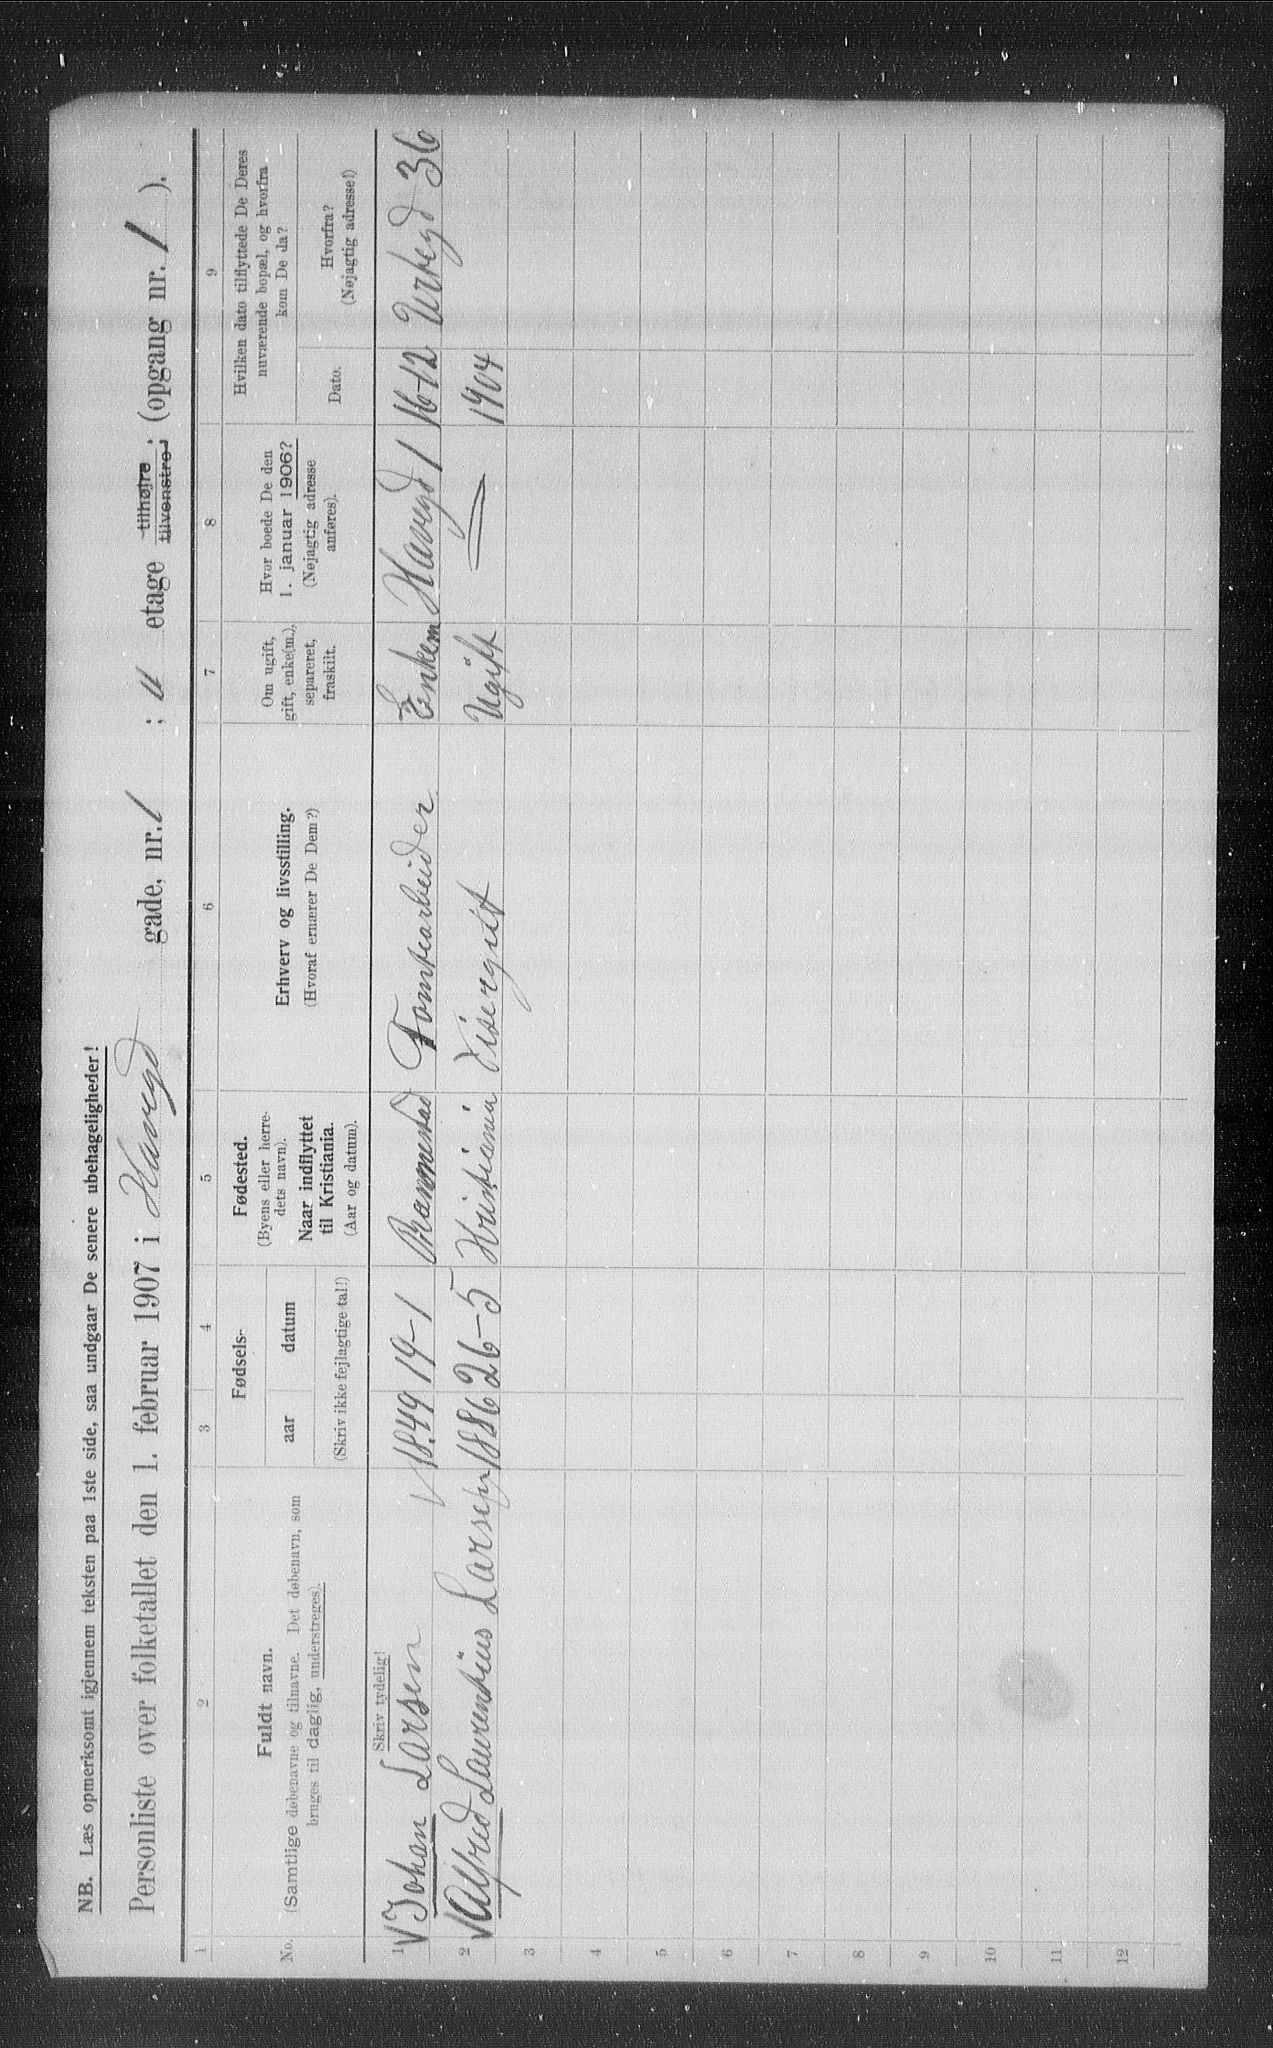 NB. Læs opmerksomt igjennem teksten paa 1ste side, saa undgaar De senere ubehageligheder!
Personliste over folketallet den 1. februar 1907 i Havegd gade, nr. 1 ; u etage tilhøjre, tilvenstre, (opgang nr. 1 ).
1 2 3 4 5 6 7 8 9
No.
Fuldt navn.
(Samtlige døbenavne og tilnavne. Det døbenavn, som
bruges til daglig, understreges).
Fødsels-
aar datum
(Skriv ikke fejlagtige tal!)
Fødested.
(Byens eller herre-
dets navn).
Naar indflyttet
til Kristiania.
(Aar og datum).
Erhverv og livsstilling.
(Hvoraf ernærer De Dem?)
Om ugift,
gift, enke(m.),
separeret,
fraskilt.
Hvor boede De den
1. januar 1906?
(Nøjagtig adresse
anføres).
Hvilken dato tilflyttede De Deres
nuværende bopæl, og hvorfra
kom De da?
Dato.
Hvorfra?
(Nøjagtig adresse!)
Skriv tydelig!
1 Johan Larsen 1849 19-1 Tomtearbeider Enkem Havegd 1 16-12 Urtegd 36
2 Alfred Laurentius Larsen 1886 26-5 Kristiania Visergut Ugift 1904
3
4
5
6
7
8
9
10
11
12